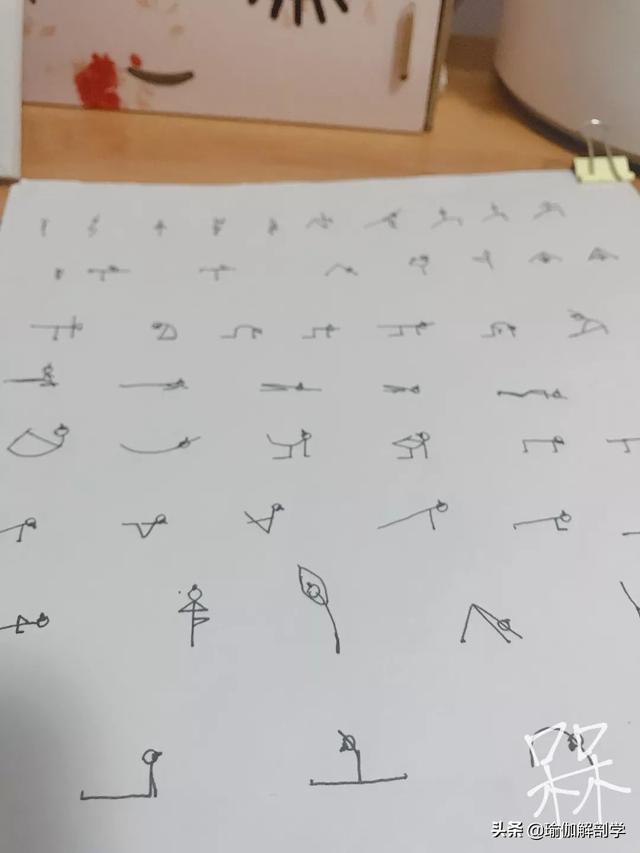 槑
头条 @瑜伽解剖学